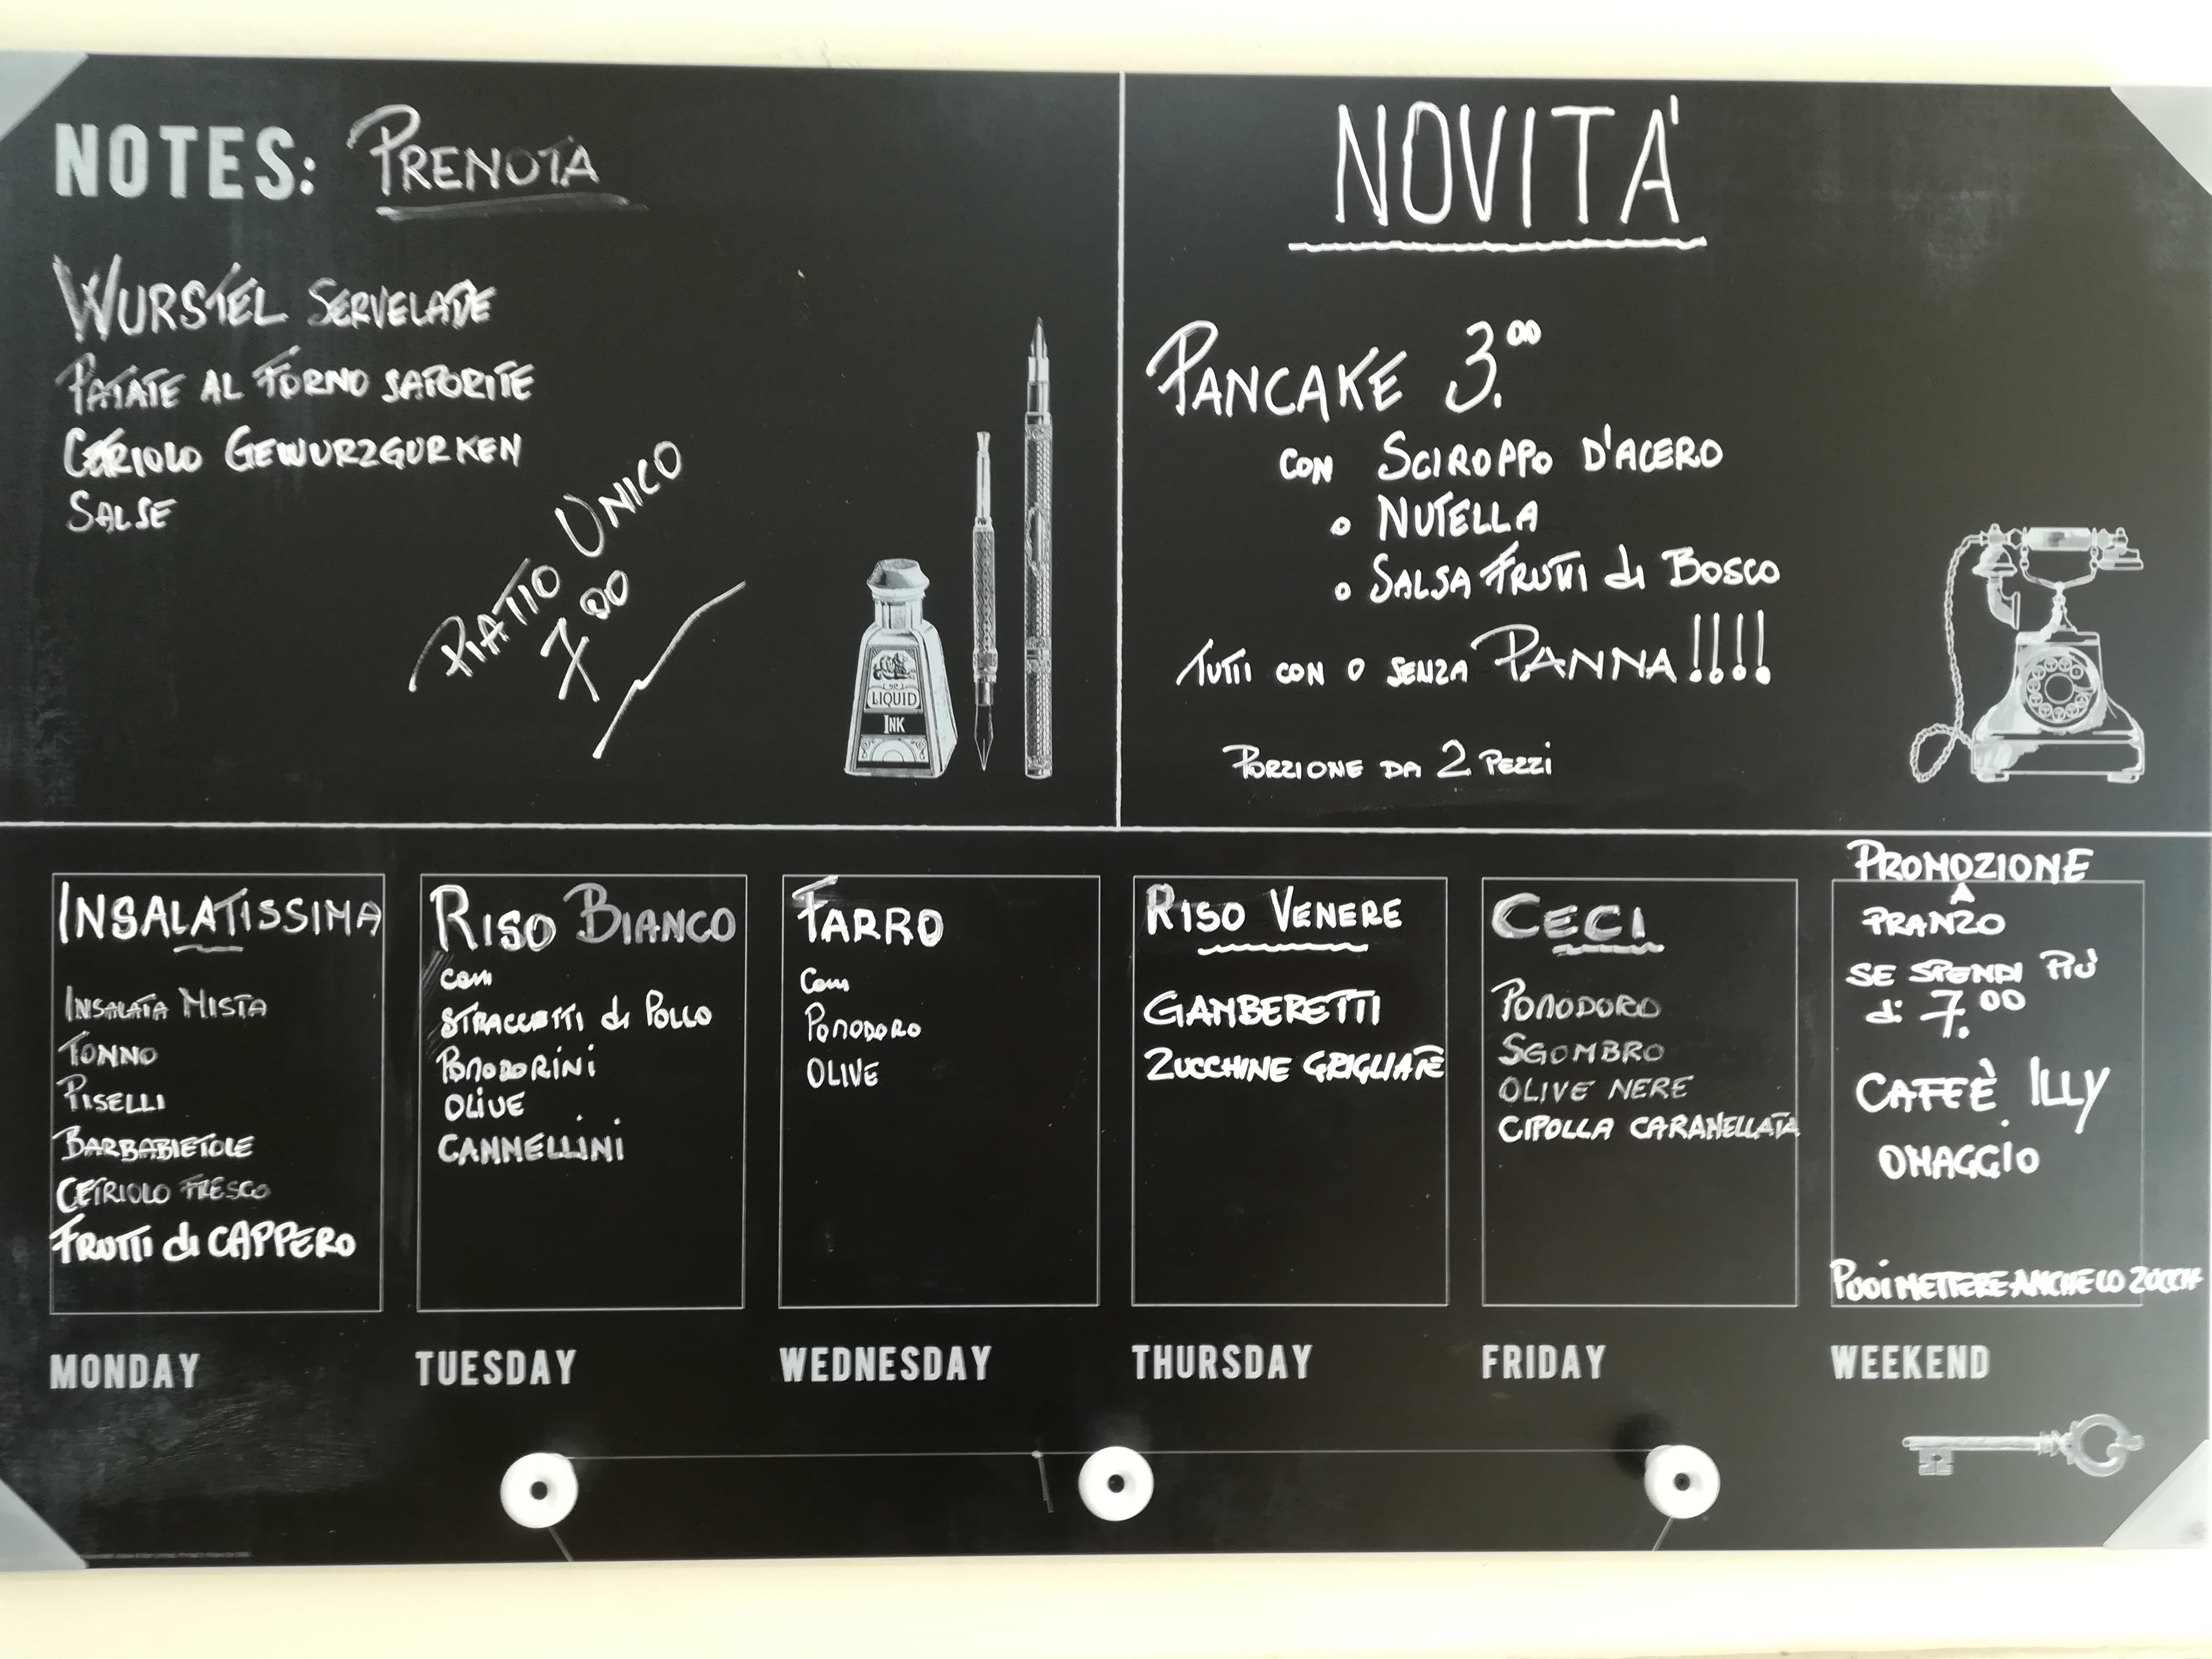 NOTES: PRENOTA
WURSTEL SERVELADE
PATATE AL FORNO SAPORITE
CETRIOLO GEWURZGURKEN
SALSE
PIATTO UNICO
7.00
LIQUID
INK
NOVITA'
PANCAKE 3.00
CON SCIROPPO D'ACERO
o NUTELLA
o SALSA FRUTTI di BOSCO
TUTTI CON O SENZA PANNA!!!!
PORZIONE DA 2 PEZZI
INSALATISSIMA
INSALATA MISTA
TONNO
PISELLI
BARBABIETOLE
CETRIOLO FRESCO
FRUTTI di CAPPERO
MONDAY
RISO BIANCO
con
STRACCETTI di POLLO
POMODORINI
OLIVE
CANNELLINI
TUESDAY
FARRO
Con
POMODORO
OLIVE
WEDNESDAY
RISO VENERE
GAMBERETTI
ZUCCHINE GRIGLIATE
THURSDAY
CECI
POMODORO
SGOMBRO
OLIVE NERE
CIPOLLA CARAMELLATA
FRIDAY
PROMOZIONE
A
PRANZO
SE SPENDI PIÙ
di 7.00
CAFFÈ ILLY
OMAGGIO
PUOI METTERE ANCHE LO ZUCCH
WEEKEND